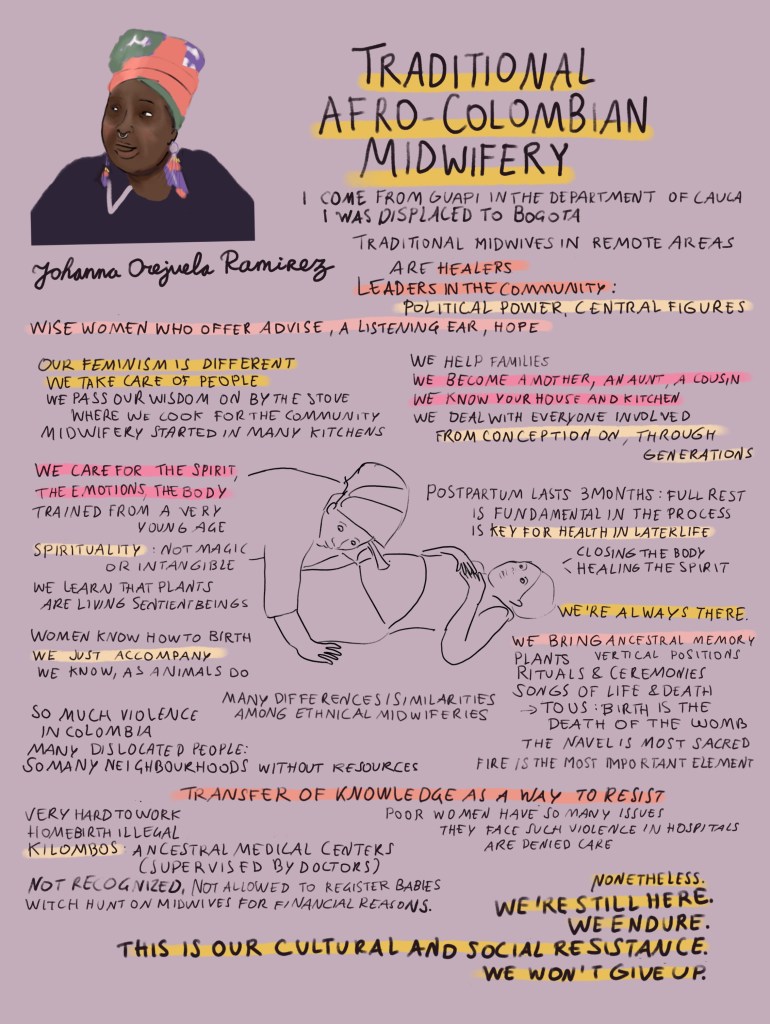 TRADITIONAL
AFRO-COLOMBIAN
MIDWIFERY
I COME FROM GUAPI IN THE DEPARTMENT OF CAUCA
I WAS DISPLACED TO BOGOTA
Johanna Orejuela Ramirez
TRADITIONAL MIDWIVES IN REMOTE AREAS
ARE HEALERS
LEADERS IN THE COMMUNITY:
POLITICAL POWER, CENTRAL FIGURES
WISE WOMEN WHO OFFER ADVISE, A LISTENING EAR, HOPE
OUR FEMINISM IS DIFFERENT
WE TAKE CARE OF PEOPLE
WE PASS OUR WISDOM ON BY THE STOVE
WHERE WE COOK FOR THE COMMUNITY
MIDWIFERY STARTED IN MANY KITCHENS
WE HELP FAMILIES
WE BECOME A MOTHER, AN AUNT, A COUSIN
WE KNOW YOUR HOUSE AND KITCHEN
WE DEAL WITH EVERYONE INVOLVED
FROM CONCEPTION ON, THROUGH
GENERATIONS
WE CARE FOR THE SPIRIT,
THE EMOTIONS, THE BODY
TRAINED FROM A VERY
YOUNG AGE
SPIRITUALITY: NOT MAGIC
OR INTANGIBLE
WE LEARN THAT PLANTS
ARE LIVING SENTIENT BEINGS
WOMEN KNOW HOW TO BIRTH
WE JUST ACCOMPANY
WE KNOW, AS ANIMALS DO
POSTPARTUM LASTS 3 MONTHS: FULL REST
IS FUNDAMENTAL IN THE PROCESS
IS KEY FOR HEALTH IN LATER LIFE
CLOSING THE BODY
< HEALING THE SPIRIT
WE'RE ALWAYS THERE.
WE BRING ANCESTRAL MEMORY
PLANTS VERTICAL POSITIONS
RITUALS & CEREMONIES
SONGS OF LIFE & DEATH
→ TO US: BIRTH IS THE
DEATH OF THE WOMB
THE NAVEL IS MOST SACRED
FIRE IS THE MOST IMPORTANT ELEMENT
MANY DIFFERENCES/SIMILARITIES
AMONG ETHNICAL MIDWIFERIES
SO MUCH VIOLENCE
IN COLOMBIA
MANY DISLOCATED PEOPLE:
SO MANY NEIGHBOURHOODS WITHOUT RESOURCES
TRANSFER OF KNOWLEDGE AS A WAY TO RESIST
VERY HARD TO WORK
HOMEBIRTH ILLEGAL
KILOMBOS: ANCESTRAL MEDICAL CENTERS
(SUPERVISED BY DOCTORS)
NOT RECOGNIZED, NOT ALLOWED TO REGISTER BABIES
WITCH HUNT ON MIDWIVES FOR FINANCIAL REASONS.
POOR WOMEN HAVE SO MANY ISSUES
THEY FACE SUCH VIOLENCE IN HOSPITALS
ARE DENIED CARE
NONETHELESS.
WE'RE STILL HERE.
WE ENDURE.
THIS IS OUR CULTURAL AND SOCIAL RESISTANCE.
WE WON'T GIVE UP.